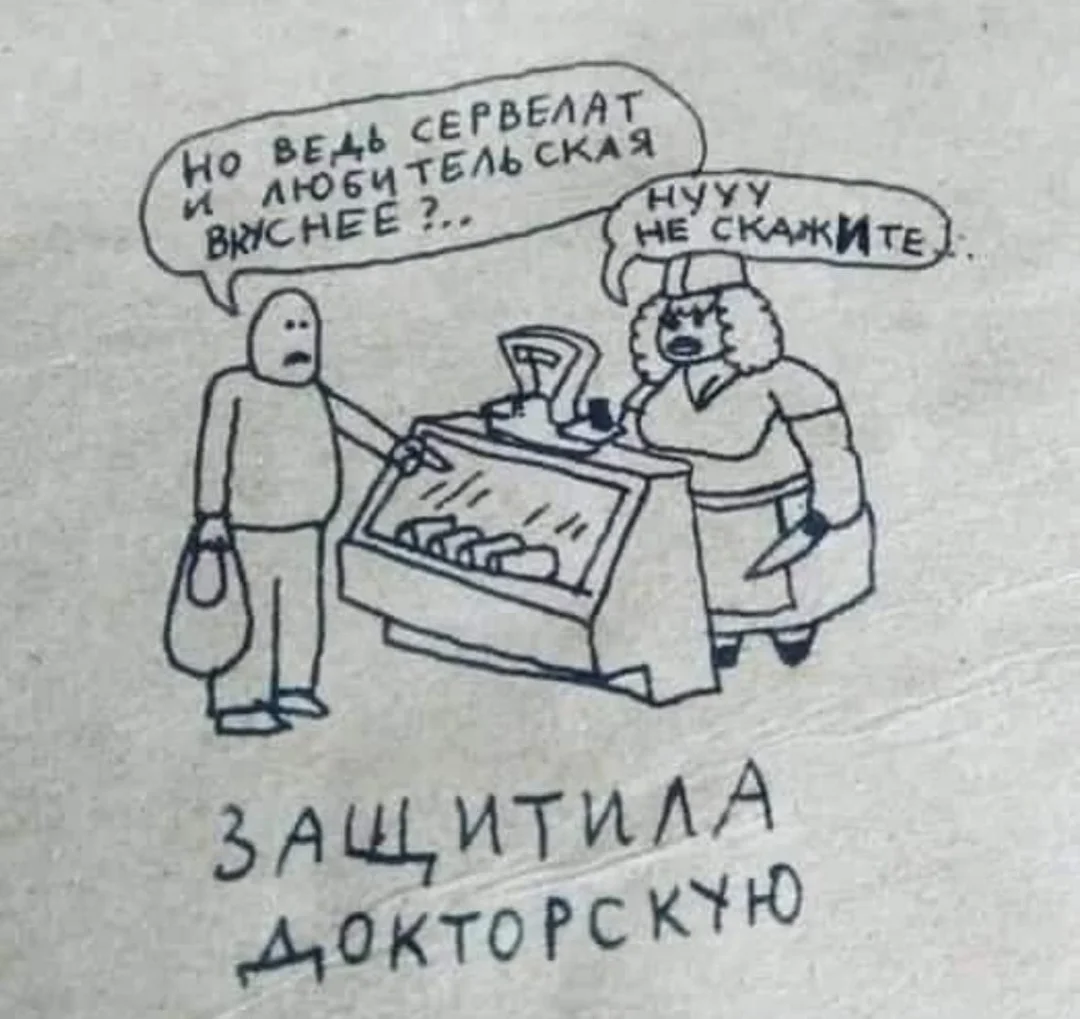 НО ВЕДЬ СЕРВЕЛАТ
И ЛЮБИТЕЛЬСКАЯ
ВКУСНЕЕ?..
НУУУ
НЕ СКАЖИТЕ...
ЗАЩИТИЛА
ДОКТОРСКУЮ